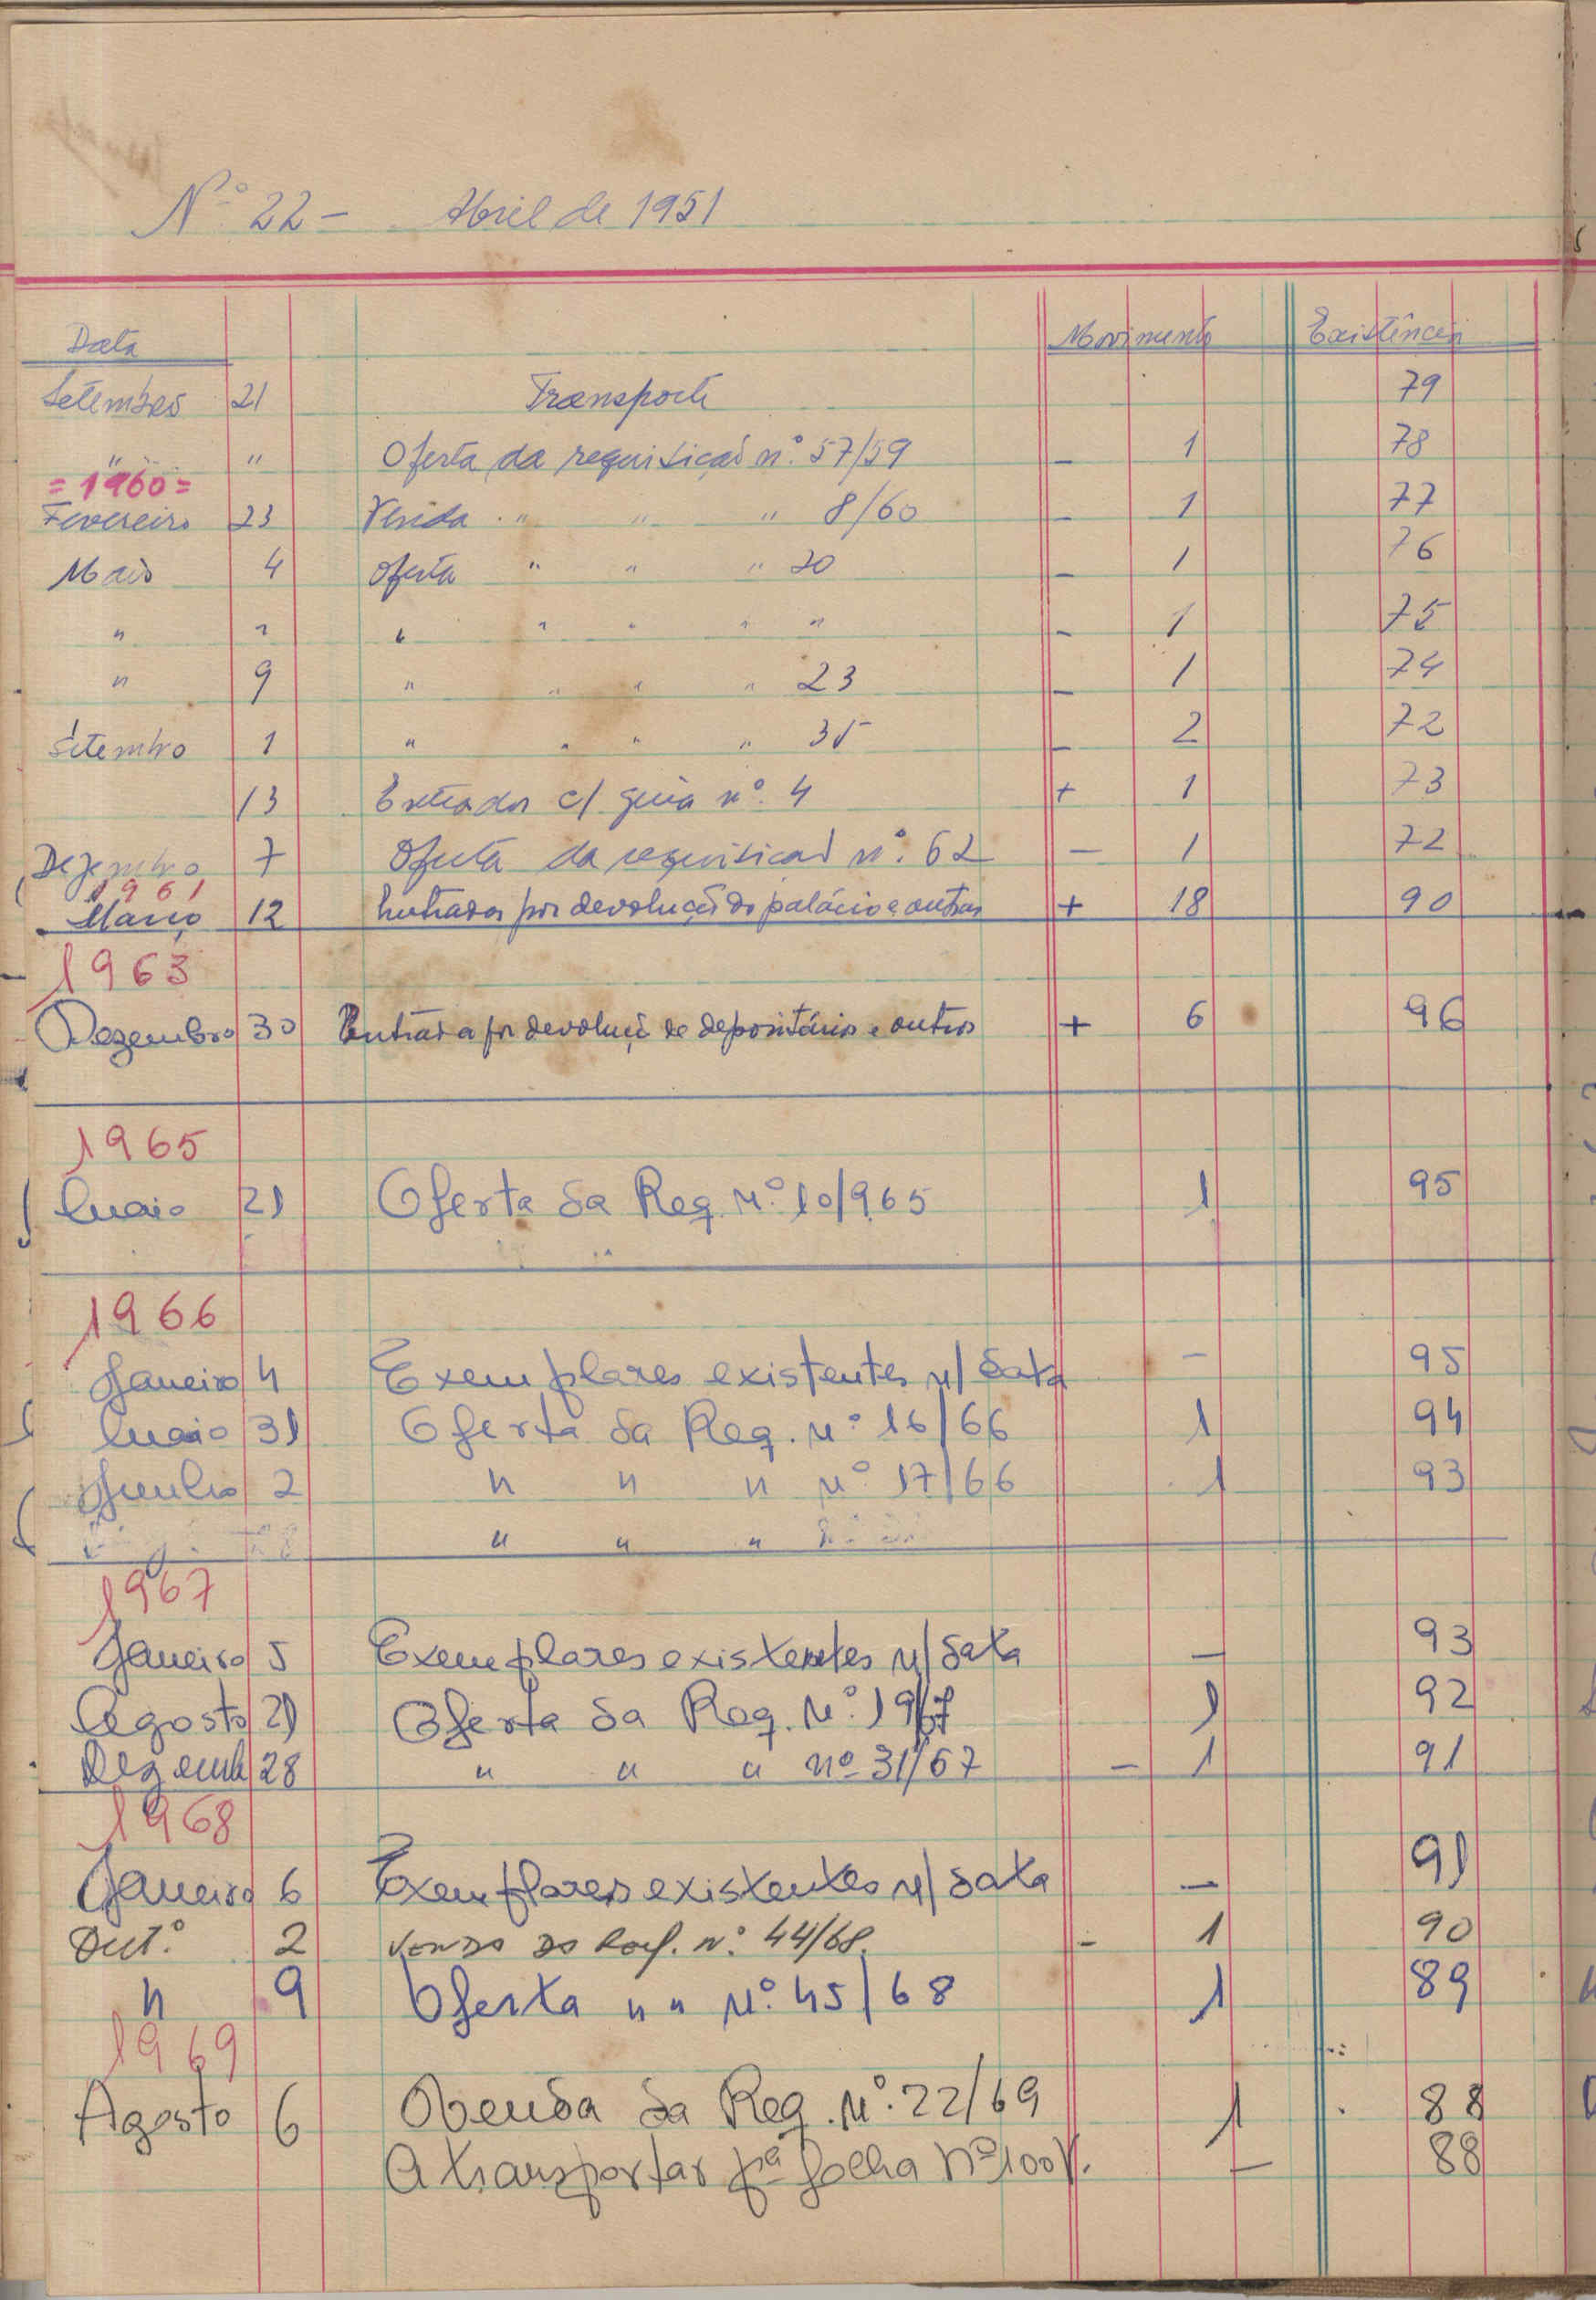 Nº 22 - Abril de 1951
Data Movimento Existência
Setembro 21 Transporte 79
" " " Oferta da requisição nº 57/59 - 1 78
= 1960 =
Fevereiro 23 Venda " " " 8/60 - 1 77
Maio 4 Oferta " " " 20 - 1 76
" " " " " " " - 1 75
" 9 " " " " 23 - 1 74
Setembro 1 " " " " 35 - 2 72
13 Entrados c/ guia nº 4 + 1 73
Dezembro 7 Oferta da requisição nº 62 - 1 72
1961
Março 12 Entrados por devolução do palácio e outros + 18 90
1963
Dezembro 30 Entrada por devoluçã de depositários e outros + 6 96
1965
Maio 21 Oferta da Req. Nº 10/965 1 95
1966
Janeiro 4 Exemplares existentes n/ data - 95
Maio 31 Oferta da Req. Nº 16/66 1 94
Junho 2 " " " Nº 17/66 1 93
" " "
1967
Janeiro 5 Exemplares existentes n/ data - 93
Agosto 21 Oferta da Req. Nº 19/67 1 92
Dezemb 28 " " " nº 31/67 - 1 91
1968
Janeiro 6 Exemplares existentes n/ data - 91
Out.º 2 Venda da Req. Nº 44/68. - 1 90
" 9 Oferta " " Nº 45/68 1 89
1969
Agosto 6 Venda da Req. Nº 22/69 1 88
A transportar pª folha nº 100V. - 88